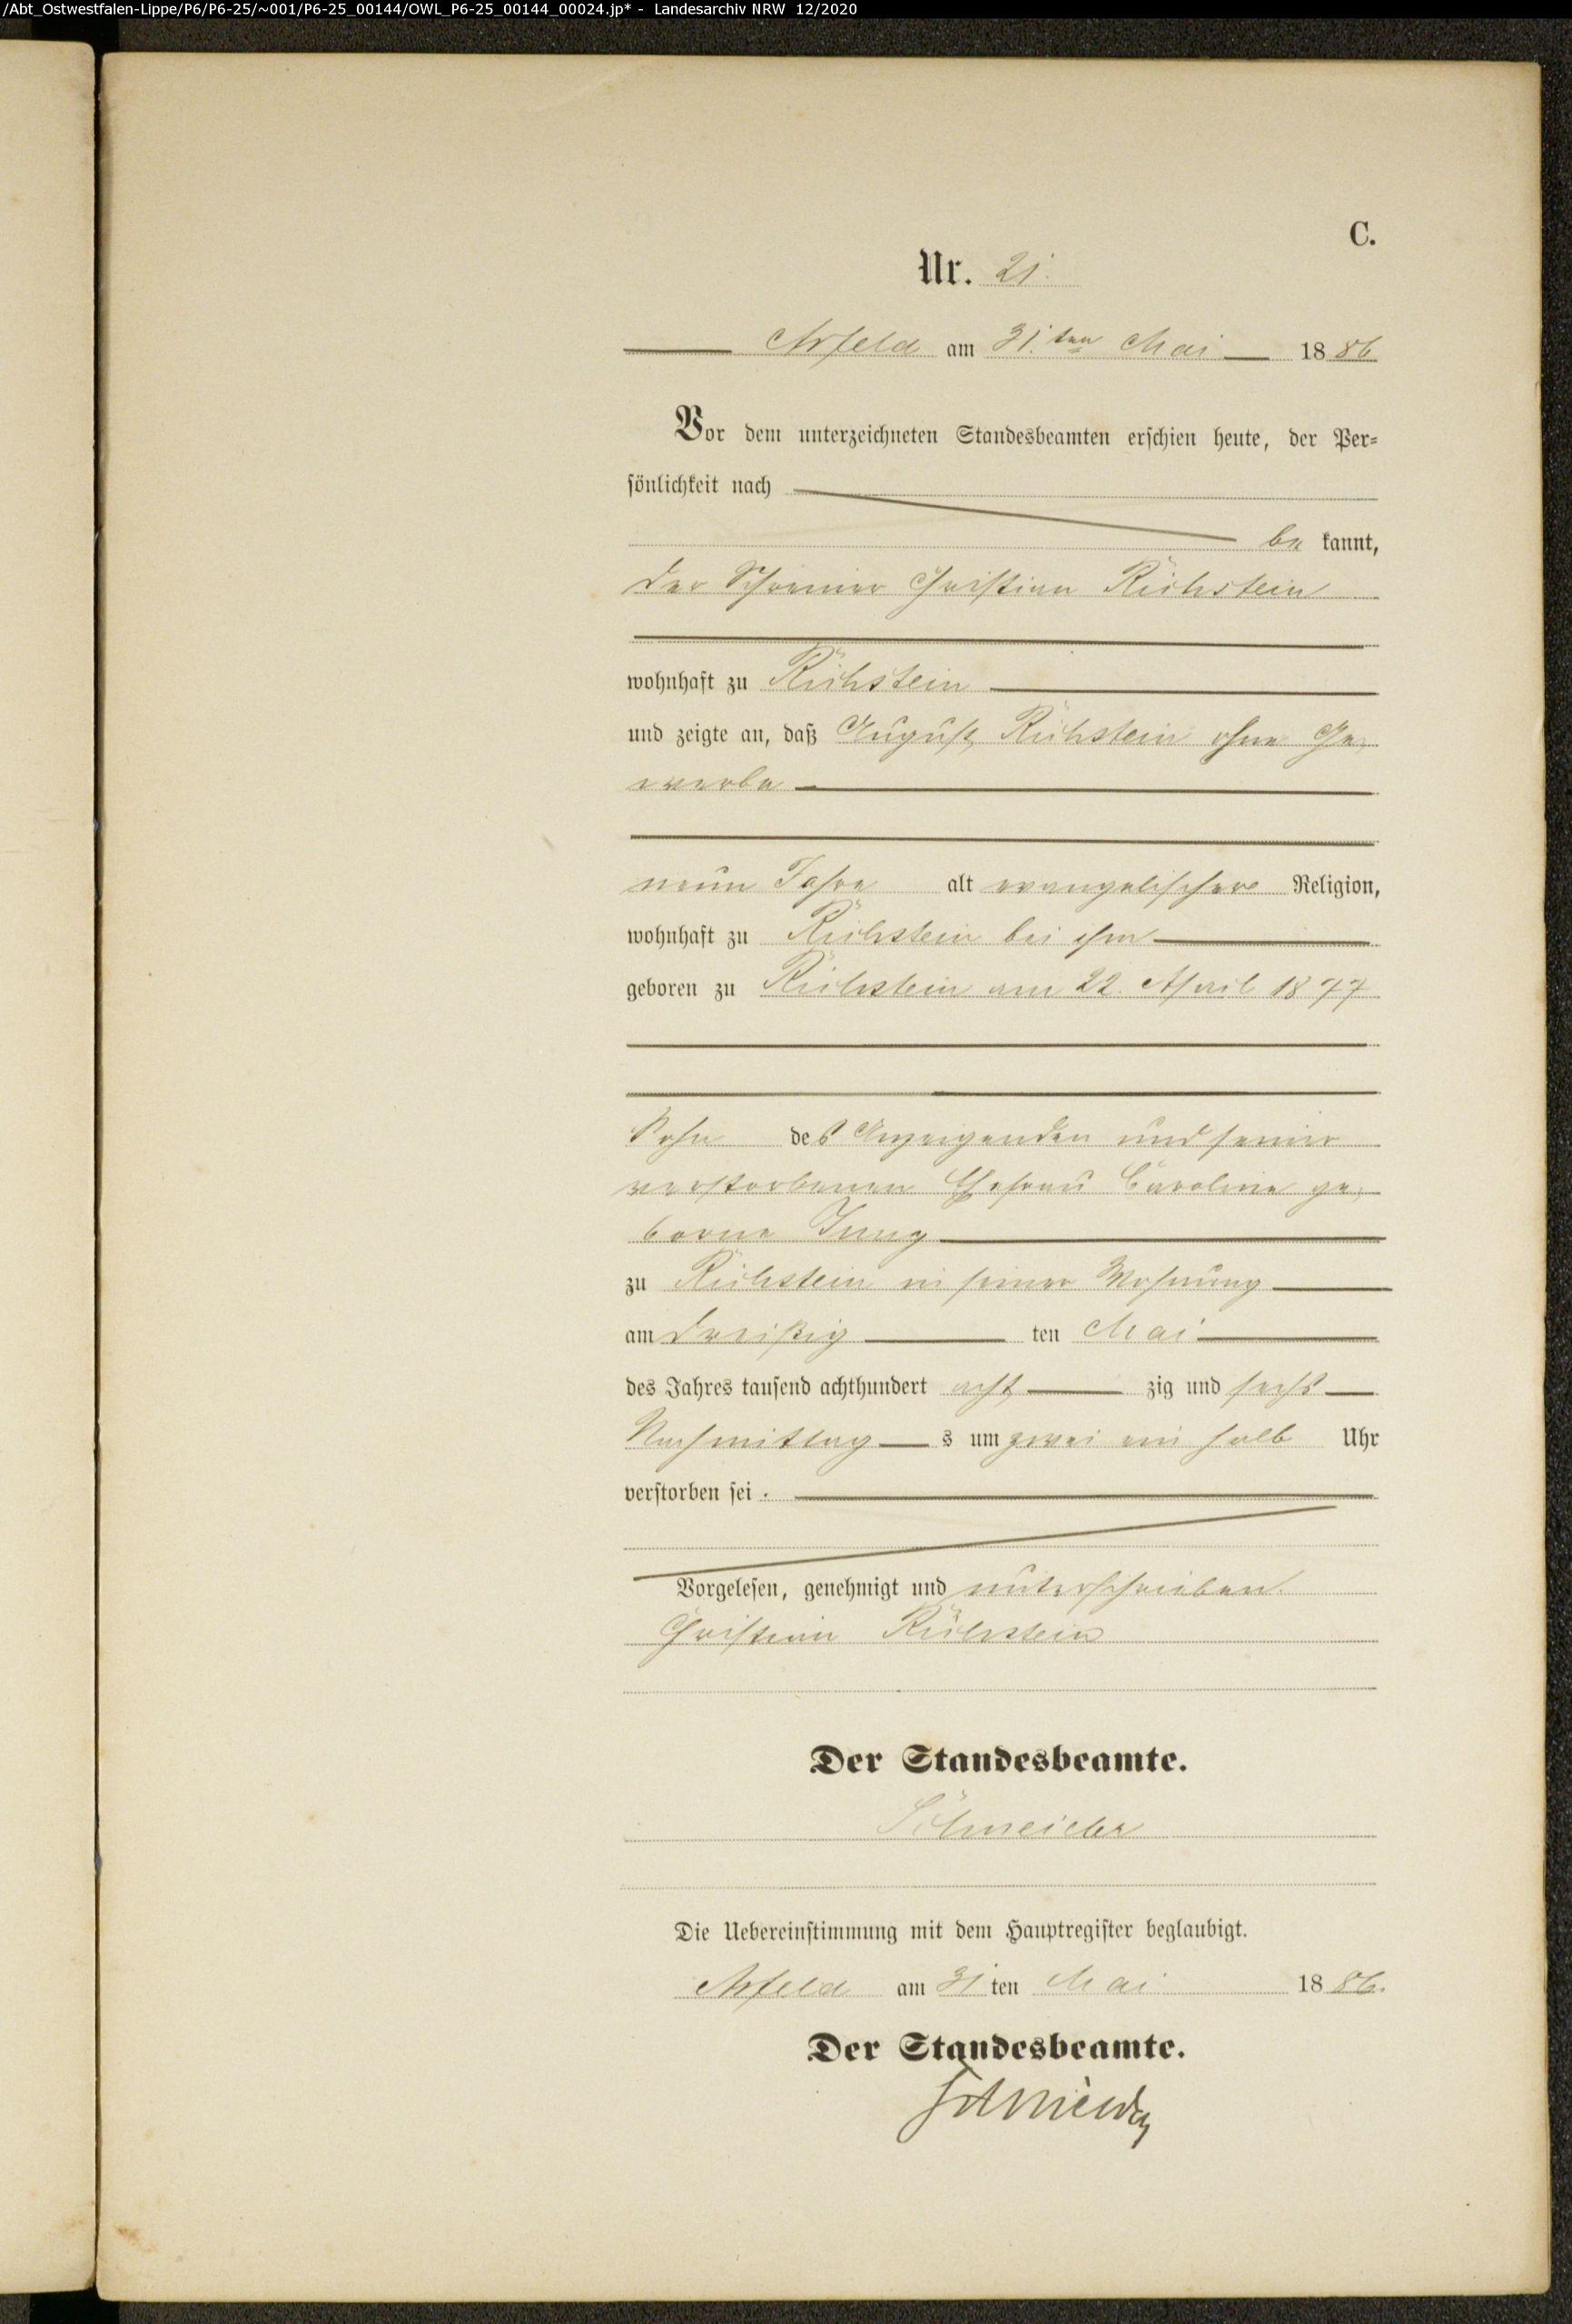 /Abt_Ostwestfalen-Lippe/P6/P6-25/~001/P6-25_00144/OWL_P6-25_00144_00024.jp* - Landesarchiv NRW 12/2020
C.
Nr. 21.
Arfeld am 31.ten Mai 1886
Vor dem unterzeichneten Standesbeamten erschien heute, der Per-
sönlichkeit nach
be kannt,
der Schreiner Christian Richstein
wohnhaft zu Richstein
und zeigte an, daß August Richstein ohne Ge-
werbe
neun Jahre alt evangelischer Religion,
wohnhaft zu Richstein bei ihm
geboren zu Richstein am 22. April 1877
Sohn des Anzeigenden und seiner
verstorbenen Ehefrau Caroline ge-
borne Jung
zu Richstein in seiner Wohnung
am dreißig ten Mai
des Jahres tausend achthundert acht zig und sechs
Nachmittag s um zwei ein halb Uhr
verstorben sei.
Vorgelesen, genehmigt und unterschrieben.
Christian Richstein
Der Standesbeamte.
Die Uebereinstimmung mit dem Hauptregister beglaubigt.
Arfeld am 31 ten Mai 1886.
Der Standesbeamte.